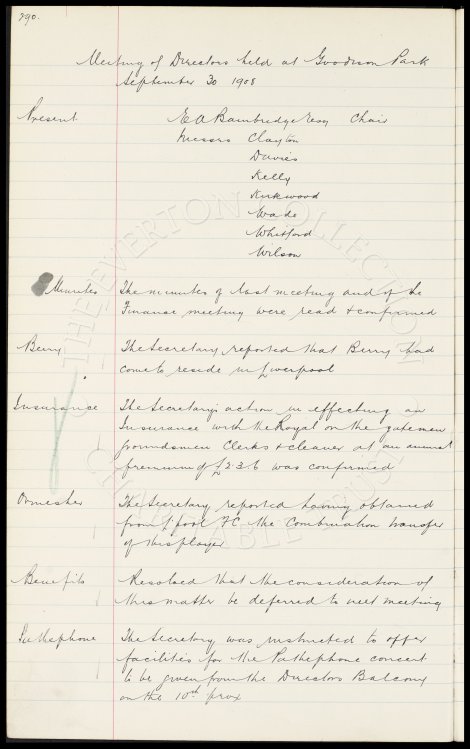 290.
Meeting of Directors held at Goodison Park
September 30 1908
Present E A Bainbridge Esq Chair
Messrs Clayton
Davies
Kelly
Kirkwood
Wade
Whitford
Wilson
Minutes The minutes of last meeting and of the
Finance meeting were read & confirmed
Berry The Secretary reported that Berry had
come to reside in Liverpool
Insurance The Secretary's action in effecting an
Insurance with the Royal on the gatemen
groundsmen Clerks & cleaner at an annual
premium of £2.3.6 was confirmed
Ormesher The Secretary reported having obtained
from L'pool FC the Combination transfer
of this player
Benefits Resolved that the consideration of
this matter be deferred to next meeting
Pathephone The Secretary was instructed to offer
facilities for the Pathephone concert
to be given from the Directors Balcony
on the 10th prox
THE EVERTON COLLECTION
CHARITABLE TRUST